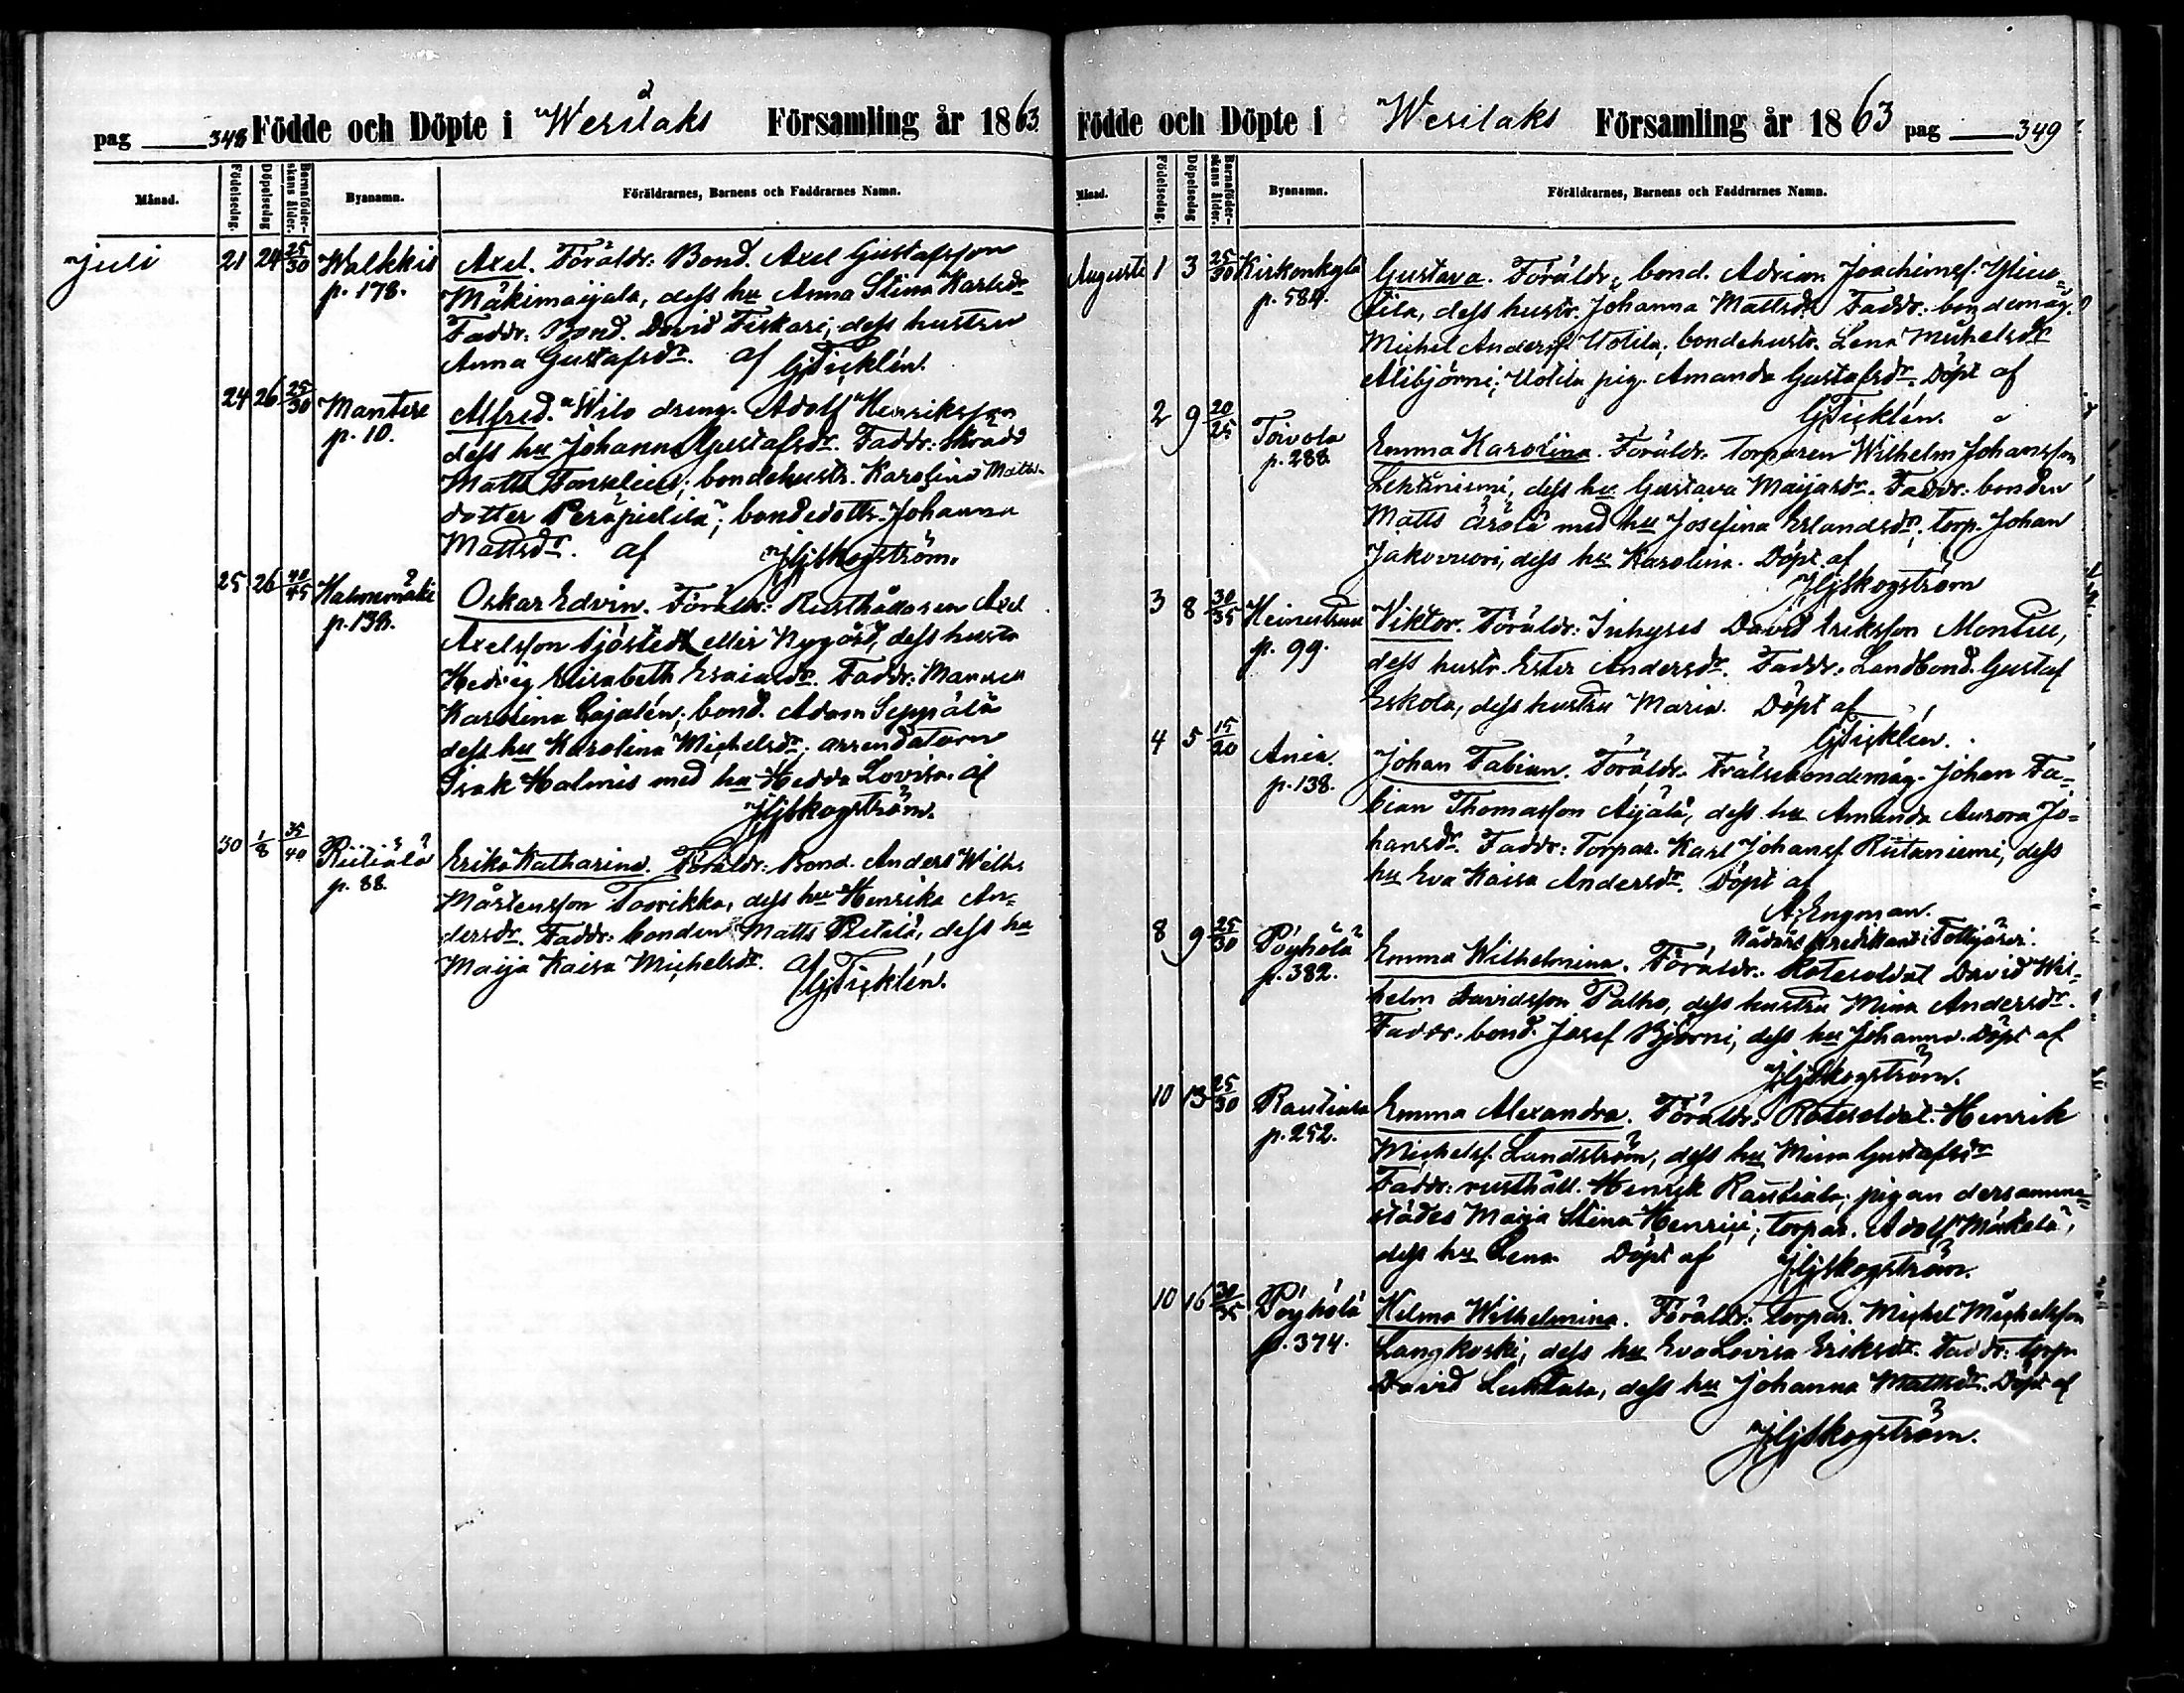 pag 348 Födde och Döpte i Wesilaks Församling år 1863
Månad. Födelsedag. Döpelsedag Barnaföderskans ålder. Byanamn. Föräldrarnes, Barnens och Faddrarnes Namn.
Juli 21 24 25/30 Walkkis Axel. Föräldr: Bond. Axel Gustafsson
p. 178. Mäkimaijala, dess hu Anna Stina Karlsdr
Faddr: Bond. David Fiskari, dess hustru
Anna Gustafsdr. af GTicklén.
24 26 25/30 Mantere Alfred. Wilo dreng. Adolf Henriksson
p. 10. dess hu Johanna Gustafsdr. Faddr: Skrädd
Matts; bondehustr. Karolina Matts-
dotter Peräpietilä; bondedottr. Johanna
Mattsdr. af JGSkogström.
25 26 40/45 Halmemäki Oskar Edvin. Föräldr: Rusthållaren Axel
p. 138. Axelsson Sjöstedt eller Nygård, dess hustr
Hedvig Elisabeth Esaiasdr. Faddr: Mamsell
Karolina Cajalén; bond. Adam Seppälä
dess hu Karolina Michelsdr; arrendatorn
Isak Halmis med hu Hedda Lovisa. af
JGSkogström.
30 1/8 35/40 Riitiälä Erika Katharina. Föräldr: Bond. Anders Wilh.
p. 88. Mårtensson Toorikka, dess hu Henrika An=
dersdr. Faddr: bonden Matts Pietilä, dess hu
Maija Kaisa Michelsdr. af GTicklén.
Födde och Döpte i Wesilaks Församling år 1863 pag 349
Månad. Födelsedag. Döpelsedag Barnaföderskans ålder. Byanamn. Föräldrarnes, Barnens och Faddrarnes Namn.
Augusti 1 3 25/30 Kirkonkylä Gustava. Föräldr: bond. Adrian Joachimss. Yliuo=
p. 584. tila, dess hustr. Johanna Mattsdr. Faddr: bondemåg.
Michel Anderss. Uotila; bondehustr. Lena Michelsdr
Alibjörni; Uotila pig. Amanda Gustafsdr. Döpt af
GTicklén.
2 9 20/25 Toivola Emma Karolina. Föräldr. Torparen Wilhelm Johansson
p. 288. Lehtiniemi, dess hu Gustava Maijasdr. Faddr: bonden
Matts Ärölä med hu Josefina Erlandsdr; torp. Johan
Jakovuori, dess hu Karolina. Döpt af
JGSkogström
3 8 30/35 Heinestrand Viktor. Föräldr: Inhyses David Eriksson Monttu,
p. 99. dess hustr. Ester Andersdr. Faddr: Landbond. Gustaf
Eskola, dess hustru Maria. Döpt af
GTicklén.
4 5 15/20 Ania. Johan Fabian. Föräldr. Frälsebondemåg. Johan Fa=
p. 138. bian Thomasson Äijälä, dess hu Amanda Aurora Jo=
hansdr. Faddr: Torpar. Karl Johanss. Riitaniemi, dess
hu Eva Kaisa Andersdr. Döpt af
A. Engman.
Nådårs predikant i Tottijärvi.
8 9 25/30 Pöyhölä Emma Wilhelmina. Föräldr. Rotesoldat David Wil=
p. 382. helm Davidsson Palho, dess hustru Mina Andersdr.
Faddr. bond. Josef Björni, dess hu Johanna. Döpt af
JGSkogström.
10 13 25/30 Rautiala Emma Alexandra. Föräldr. Rotesoldat Henrik
p. 252. Michelss. Landström, dess hu Mina Gustafsdr
Faddr: rusthåll. Henrik Rautiala; pigan dersamma=
städes Maija Stina Henrici; torpar. Adolf Mäkelä,
dess hu Lena Döpt af JGSkogström.
10 16 30/35 Pöyhölä Hilma Wilhelmina. Föräldr: torpar. Michel Michelsson
p. 374. Langkoski, dess hu Eva Lovisa Eriksdr. Faddr: torp.
David Lukkala, dess hu Johanna Mattsdr. Döpt af
JGSkogström.